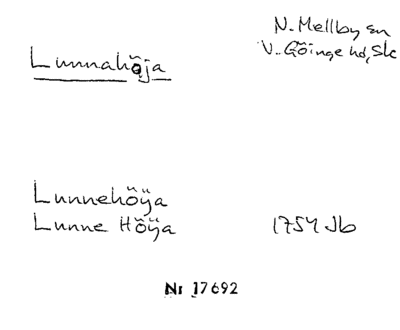 Lunnahöja
N. Mellby sn
V. Göinge hd, Sk
Lunnehöÿa
Lunne Höÿa 1754 Jb
Nr 17692